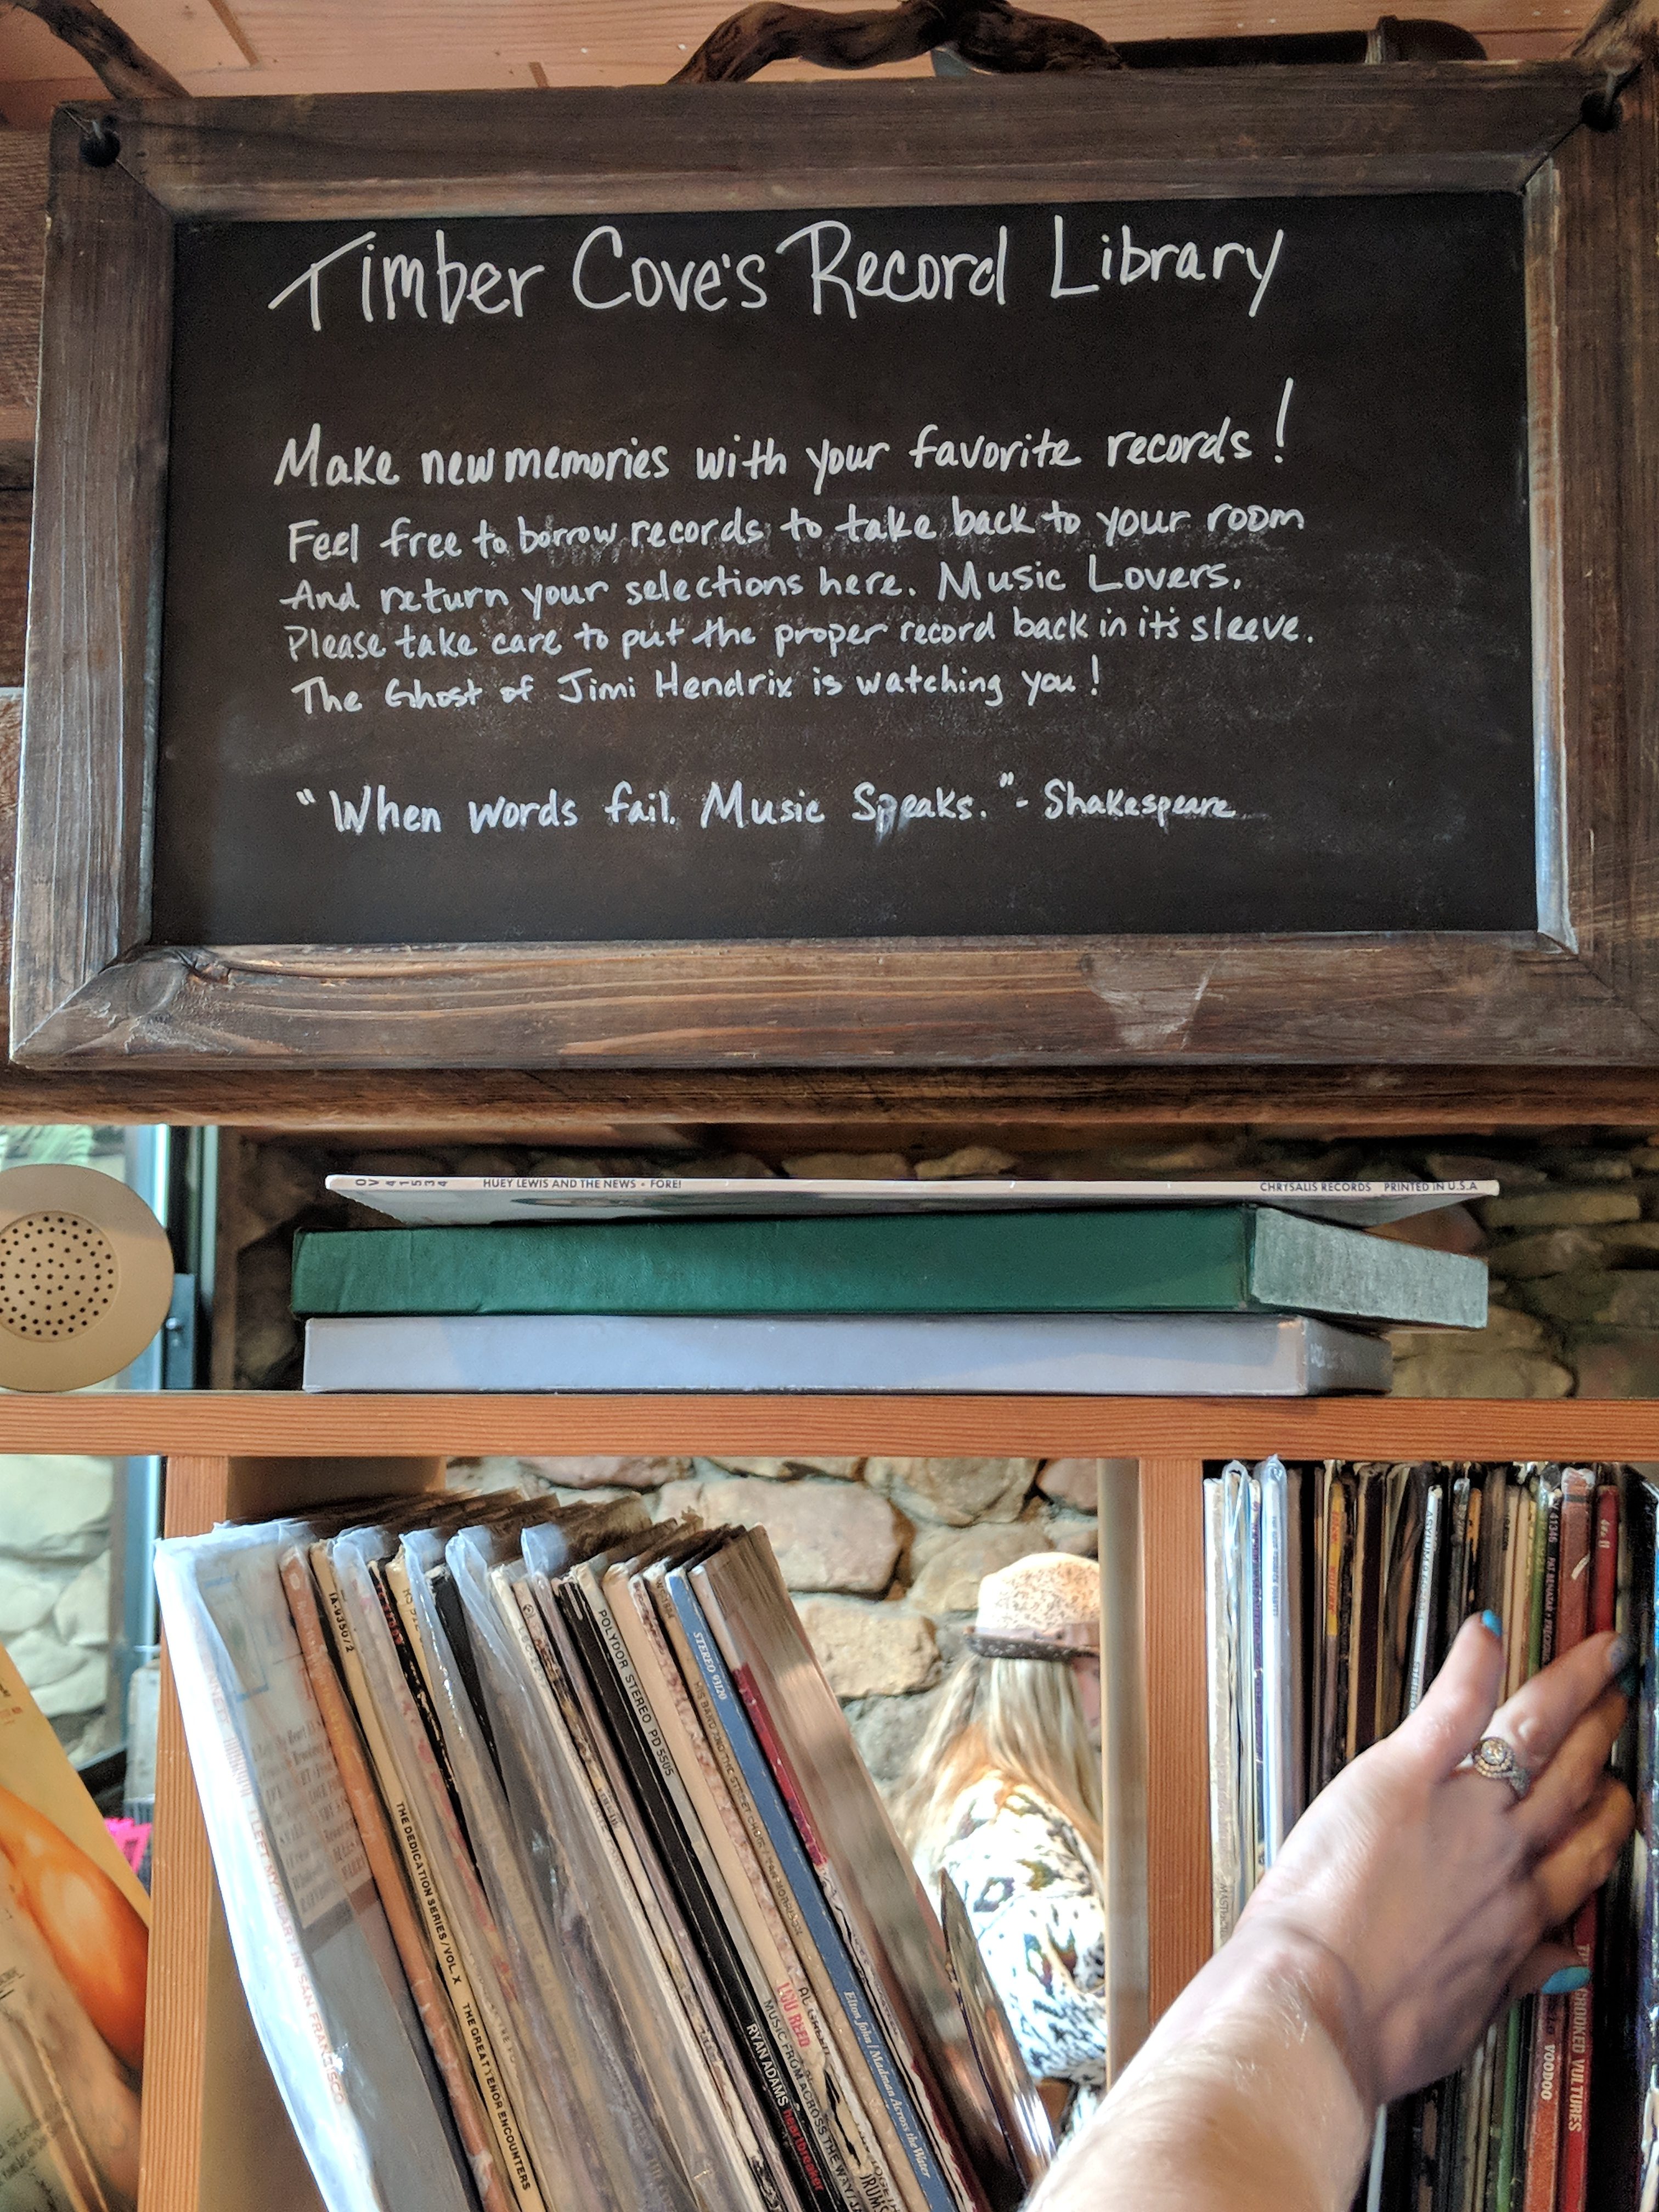 Timber Cove's Record Library
Make new memories with your favorite records!
Feel free to borrow records to take back to your room
And return your selections here. Music Lovers.
Please take care to put the proper record back in it's sleeve.
The Ghost of Jimi Hendrix is watching you!
"When words fail. Music Speaks." - Shakespeare
OV 41534 HUEY LEWIS AND THE NEWS • FORE! CHRYSALIS RECORDS PRINTED IN U.S.A
I LEFT MY HEART IN SAN FRANCISCO
THE DEDICATION SERIES / VOL. X THE GREAT TENOR ENCOUNTERS
POLYDOR STEREO PD 5505
RYAN ADAMS heartbreaker
MUSIC FROM ACROSS THE WAY
LOU REED
AL GREEN
HIS BAND AND THE STREET CHOIR / VAN MORRISON
STEREO 93120 Elton John / Madman Across the Water
DRUMS
ASYLUM
41346 PAT BENATAR
CROOKED VULTURES
VOODOO